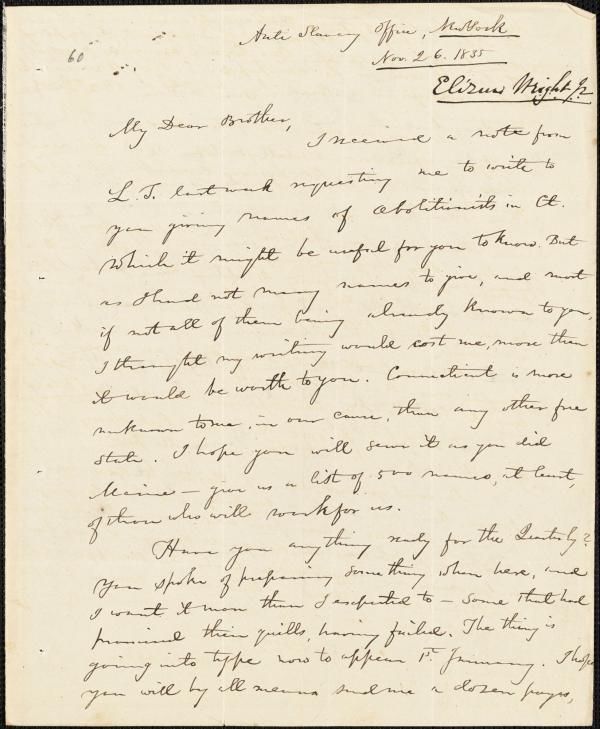 60
Anti Slavery Office, NewYork
Nov. 26. 1835
Elizur Wright Jr
My Dear Brother,
I received a note from
L. T. last week requesting me to write to
you giving names of abolitionists in Ct.
which it might be useful for you to know. But
as I had not many names to give, and most
if not all of them being already known to you,
I thought my writing would cost me, more than
it would be worth to you. Connecticut is more
unknown to me, in our cause, than any other free
state. I hope you will serve it as you did
Maine — give us a list of 500 names, at least,
of those who will work for us.
Have you anything ready for the Quarterly?
You spoke of preparing something when here, and
I want it more than I expected to — some that had
promised their quills, having failed. The thing is
going into type now to appear 1st January. I hope
you will by all means send me a dozen pages,